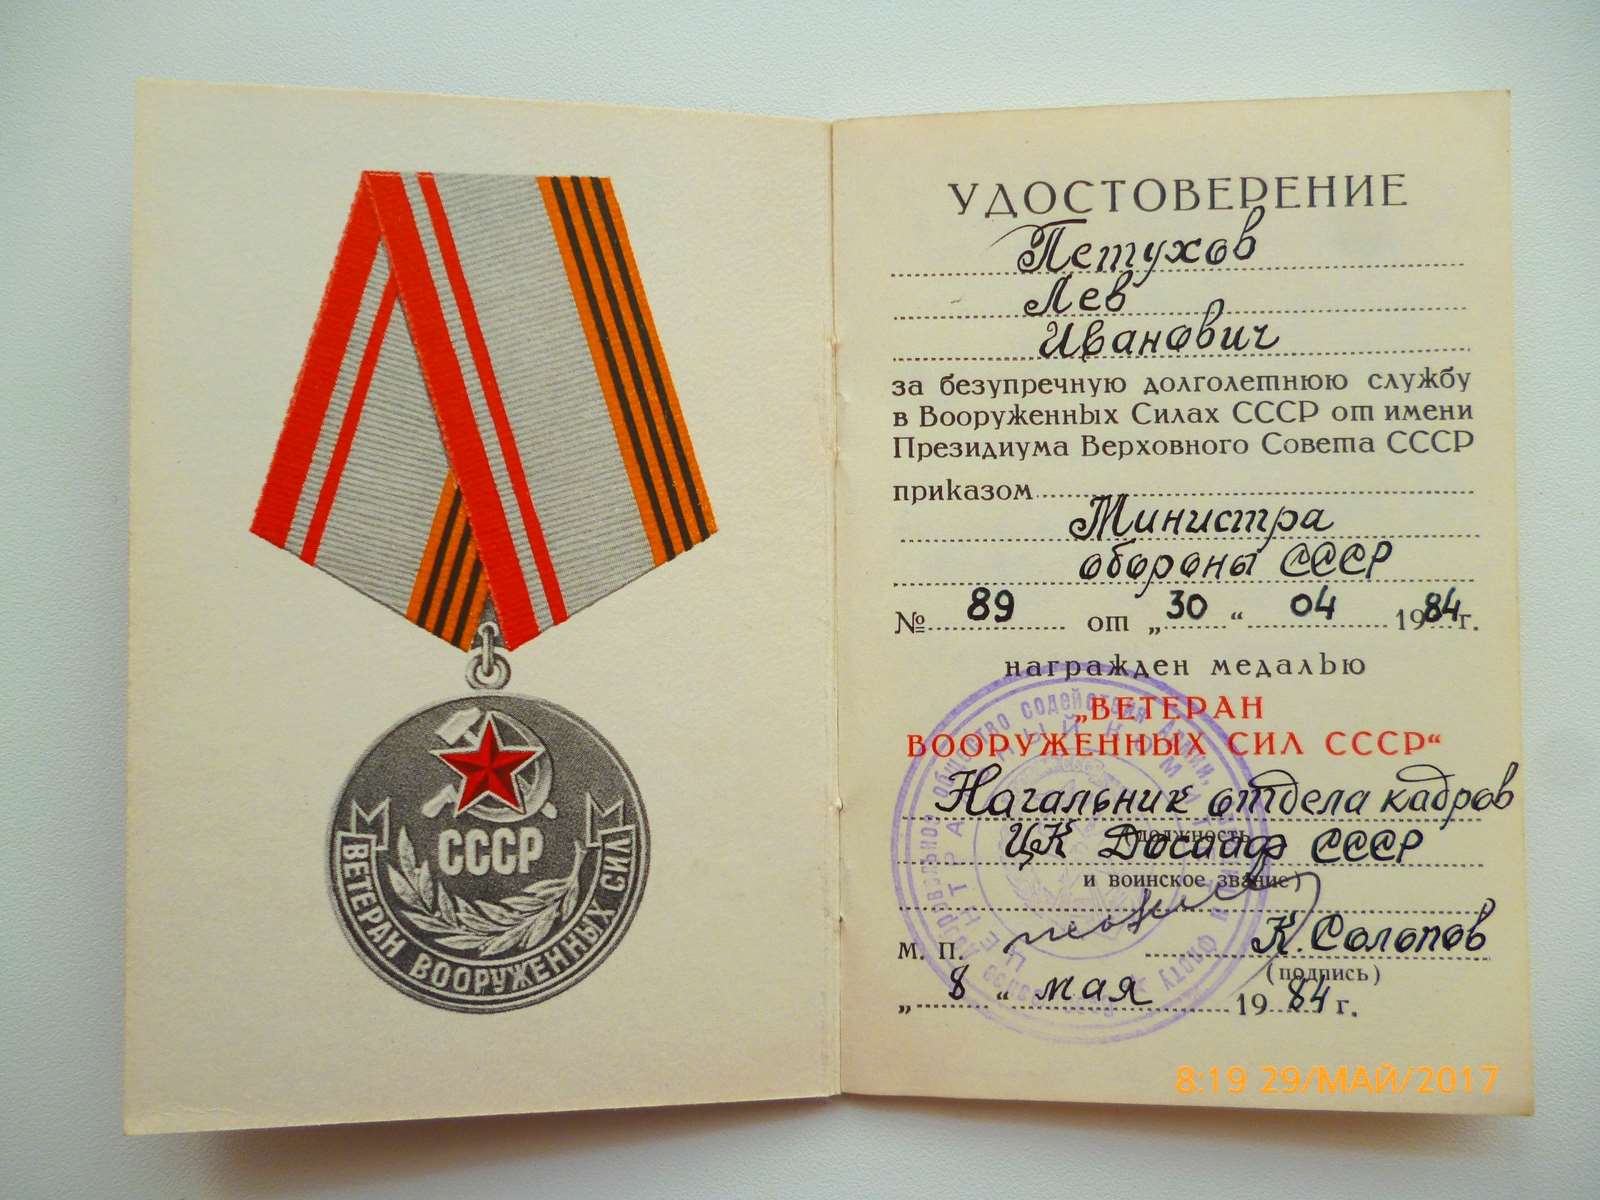 СССР
ВЕТЕРАН ВООРУЖЕННЫХ СИЛ
УДОСТОВЕРЕНИЕ
Петухов
Лев
Иванович
за безупречную долголетнюю службу
в Вооруженных Силах СССР от имени
Президиума Верховного Совета СССР
приказом
Министра
обороны СССР
№ 89 от „30“ 04 1984 г.
награжден медалью
„ВЕТЕРАН
ВООРУЖЕННЫХ СИЛ СССР“
Начальник отдела кадров
(должность
ЦК Досааф СССР
и воинское звание)
М. П. К. Солопов
(подпись)
„8“ мая 1984 г.
общество содействия армии,
ЦЕНТРАЛЬНЫЙ КОМИТЕТ
8:19 29/МАЙ/2017